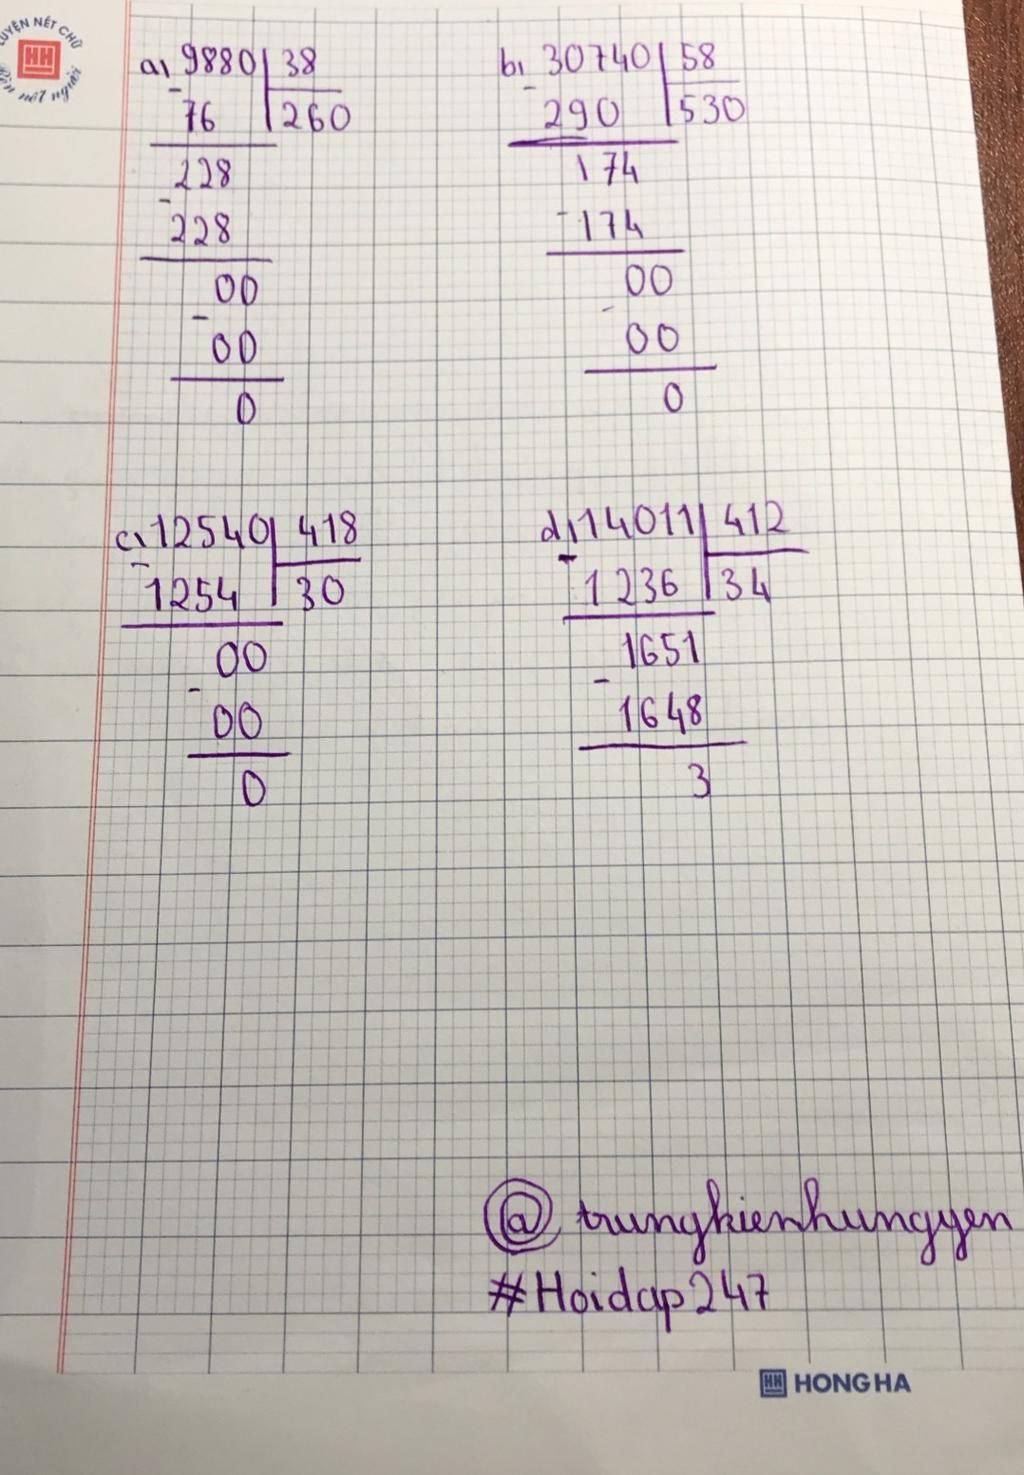 LUYỆN NÉT CHỮ
HH
Rèn nết người
a, 9880 38
- 76 260
228
- 228
00
- 00
0
b, 30740 58
- 290 530
174
- 174
00
- 00
0
c, 12540 418
- 1254 30
00
- 00
0
d, 14011 412
- 1236 34
1651
- 1648
3
@ trungkienhungyen
#Hoidap247
HH HONG HA